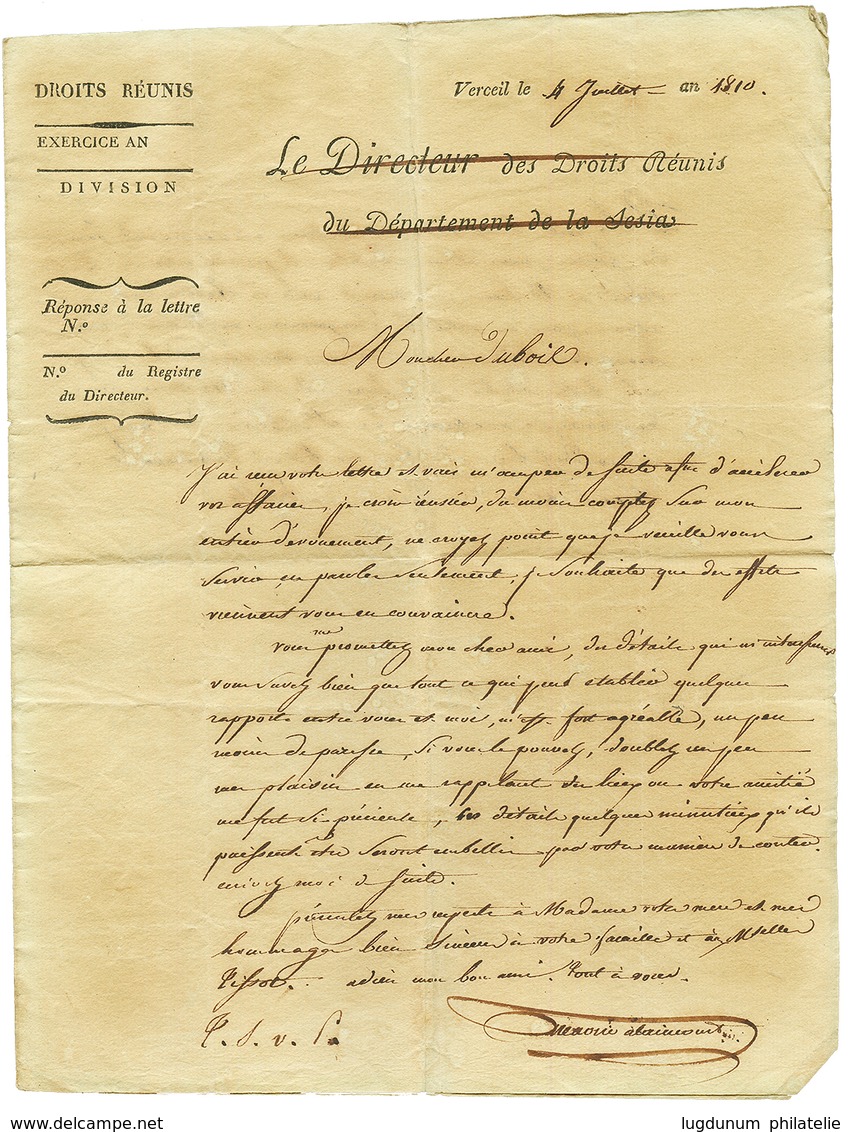 DROITS RÉUNIS
EXERCICE AN
DIVISION
Verceil le 4 Juillet an 1810.
Le Directeur des Droits Réunis
du Département de la Sesia
Réponse à la lettre
N.º
N.º du Registre
du Directeur.
Mon cher Dubois.
J'ai reçu votre lettre et vais m'occuper de suite afin d'
vos affaires, je crois, du moins comptez sur mon
entier dévouement, ne croyez point que je veuille vous
servir en paroles seulement, je souhaite que des effets
viennent vous en convaincre.
vous me promettez mon cher ami, des détails qui m'intéressent
vous savez bien que tout ce qui peut établir quelques
rapports entre vous et moi, m'est fort agréable, un peu
moins de paresse, si vous le pouvez, doublez un peu
mes plaisirs en me rappelant du lieu où votre amitié
me fut si précieuse, les détails quelques minutieux qu'ils
puissent être seront embellis par votre manière de conter.
écrivez moi de suite.
présentez mes respects à Madame votre mere et mes
hommages bien sincères à votre famille et à Mselles
Tissot. adieu mon bon ami. tout à vous.
T. S. v. P.
lugdunum philatelie